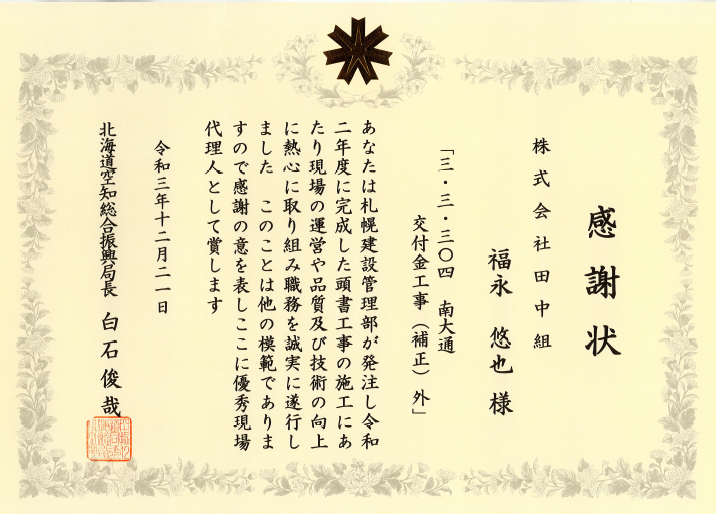 感謝状
株式会社田中組
福永 悠也 様
「三・三・三〇四 南大通
交付金工事（補正）外」
あなたは札幌建設管理部が発注し令和
二年度に完成した頭書工事の施工にあ
たり現場の運営や品質及び技術の向上
に熱心に取り組み職務を誠実に遂行し
ました このことは他の模範でありま
すので感謝の意を表しここに優秀現場
代理人として賞します
令和三年十二月二一日
北海道空知総合振興局長 白石俊哉